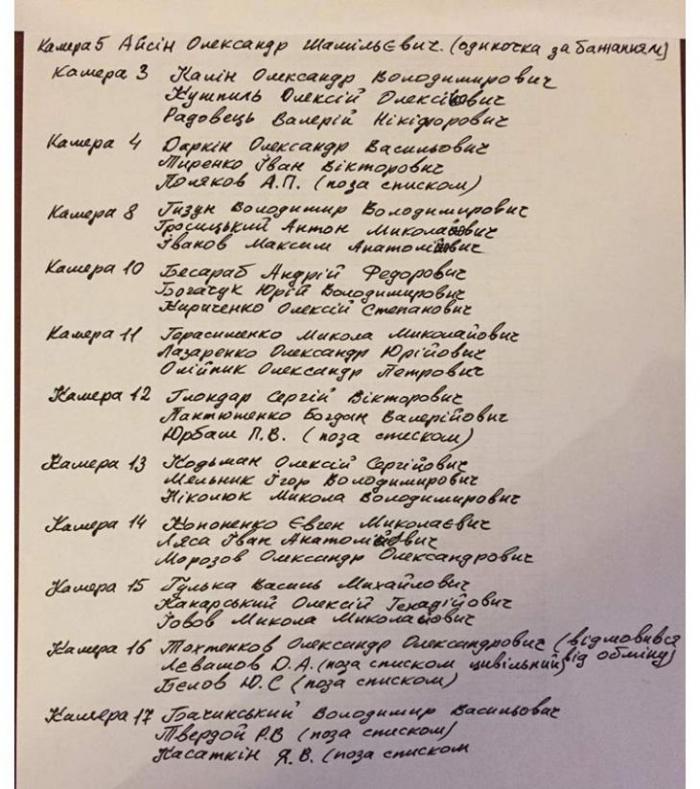 Камера 5 Айсін Олександр Шамільєвич. (одиночка за бажанням)
Камера 3 Калін Олександр Володимирович
Кушпиль Олексій Олексійович
Радовець Валерій Нікіфорович
Камера 4 Даркін Олександр Васильович
Тиренко Іван Вікторович
Поляков А.П. (поза списком)
Камера 8 Гизун Володимир Володимирович
Гросицький Антон Миколайович
Іванов Максим Анатолійович
Камера 10 Бесараб Андрій Федорович
Богачук Юрій Володимирович
Кириченко Олексій Степанович
Камера 11 Герасименко Микола Миколайович
Лазаренко Олександр Юрійович
Олійник Олександр Петрович
Камера 12 Глондар Сергій Вікторович
Пантюшенко Богдан Валерійович
Юрбаш П.В. (поза списком)
Камера 13 Кодьман Олексій Сергійович
Мельник Ігор Володимирович
Ніколюк Микола Володимирович
Камера 14 Кононенко Євген Миколаєвич
Ляса Іван Анатолійович
Морозов Олександр Олександрович
Камера 15 Гулька Василь Михайлович
Какарський Олексій Генадійович
Іовов Микола Миколайович
Камера 16 Тохтенков Олександр Олександрович (відмовився
Левашов О.А. (поза списком цивільний) від обміну)
Бєлов Ю.С (поза списком)
Камера 17 Бачинський Володимир Васильович
Твердой Р.В (поза списком)
Касаткін Я.В. (поза списком